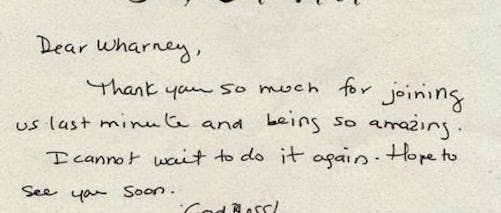 Dear Wharney,
Thank you so much for joining
us last minute and being so amazing.
I cannot wait to do it again. Hope to
see you soon.
God Bless!